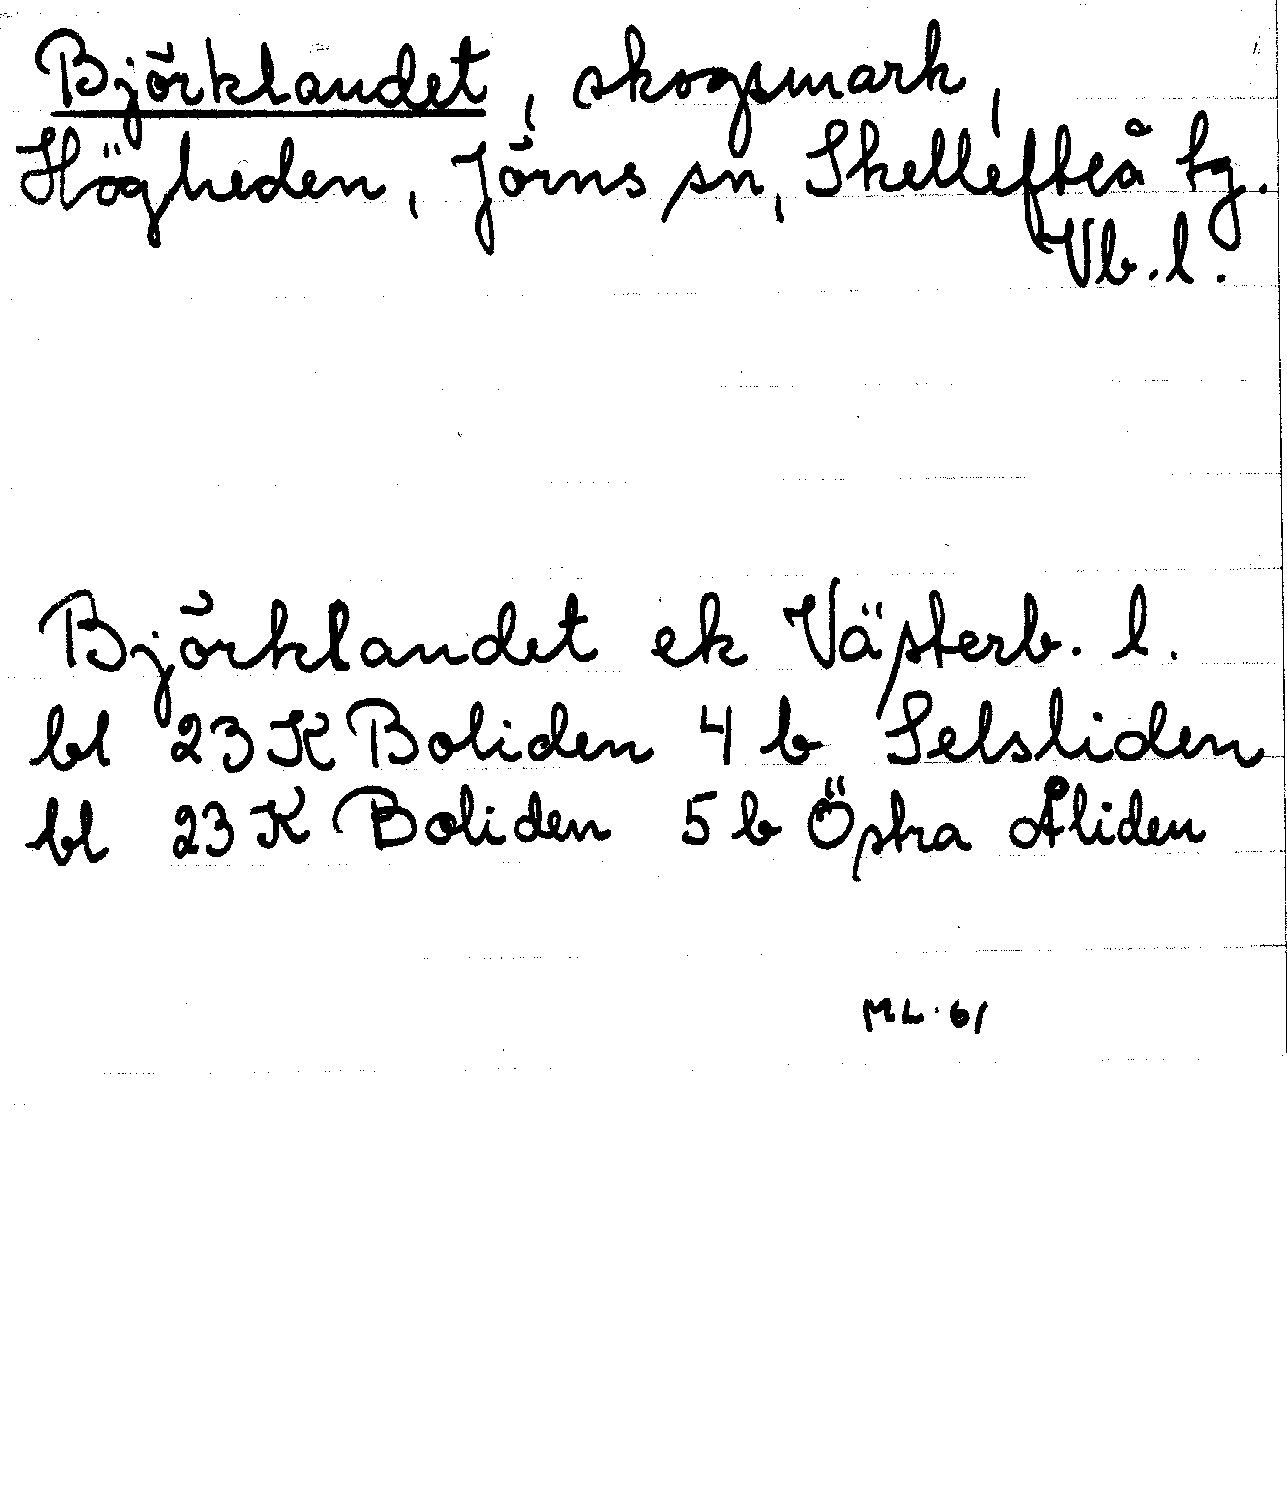 Björklandet, skogsmark,
Högheden, Jörns sn, Skellefteå tg.
Vb. l.
Björklandet ek Västerb. l.
bl 23 K Boliden 4 b Selsliden
bl 23 K Boliden 5 b Östra Åliden
ML. 61